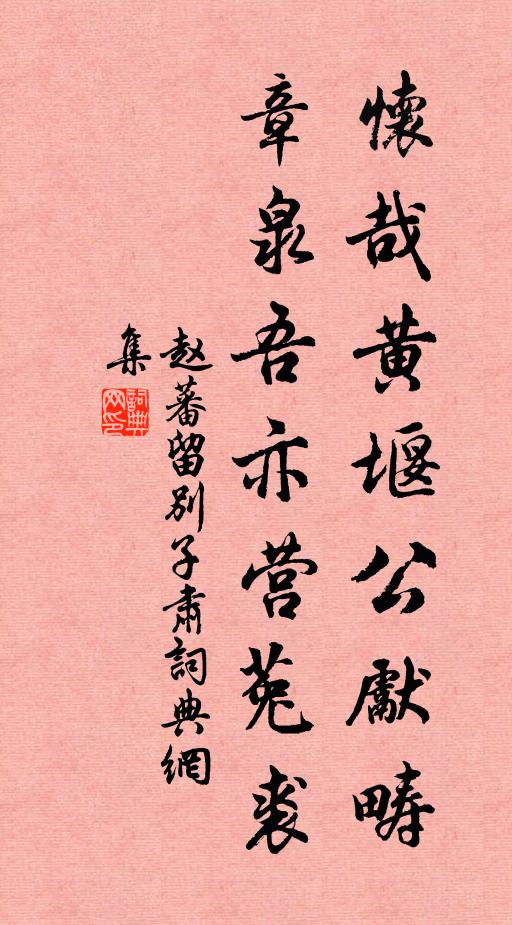 懷哉黄堰公獻疇
章泉吾亦营菟裘
赵蕃留别子肅詞典網
集
詞典網印